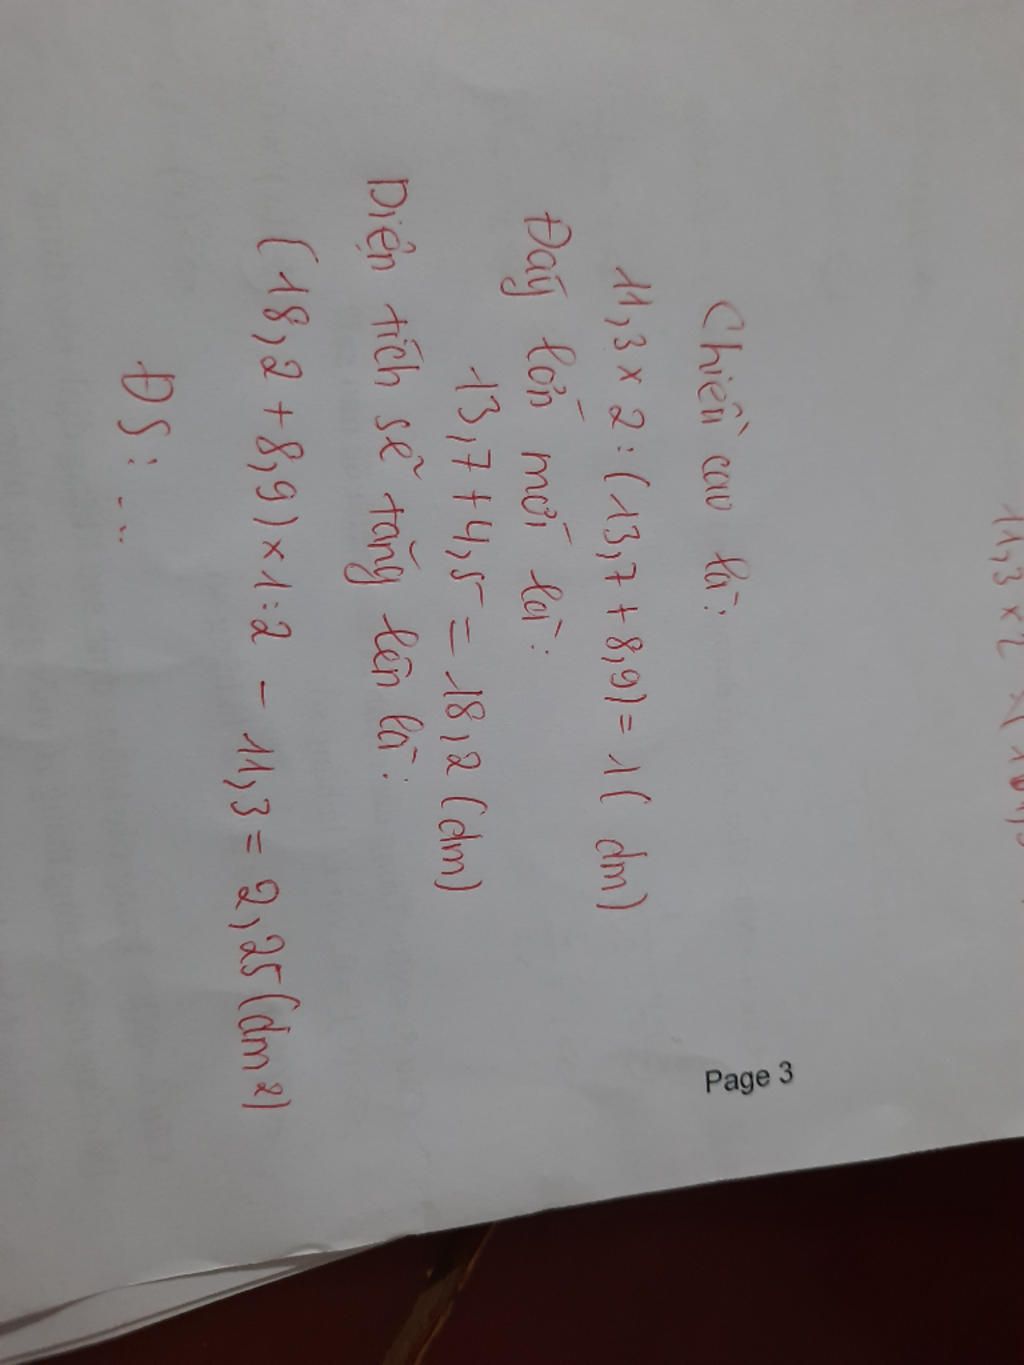 Chiều cao là:
11,3 x 2 : (13,7 + 8,9) = 1 ( dm)
Đáy lớn mới là:
13,7 + 4,5 = 18,2 (dm)
Diện tích sẽ tăng lên là:
(18,2 + 8,9) x 1 : 2 - 11,3 = 2,25 (dm2)
ĐS: ...
Page 3
11,3 x 2